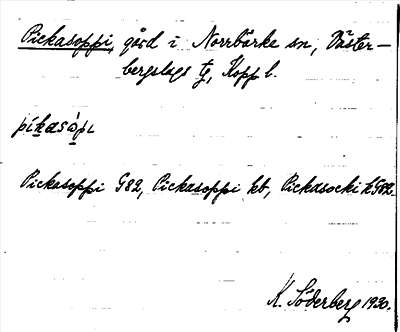 Pickasoppi, gård i Norrbärke sn, Väster-
bergslags tg, Kopp l.
pikasòpı
Pickasoppi G82, Pickasoppi kb, Pickasocki hG82.
K. Söderberg 1930.